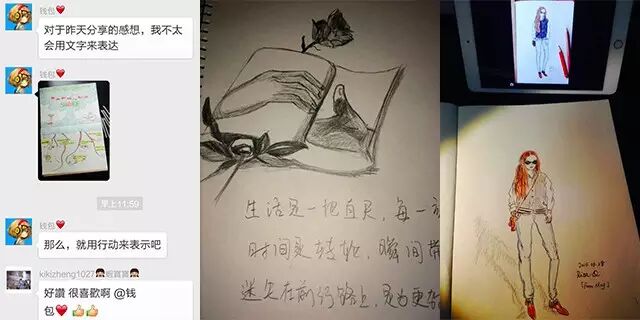 钱包❤
对于昨天分享的感想，我不太
会用文字来表达
钱包❤
早上11:59
钱包❤
那么，就用行动来表示吧
kikizheng1027
好讚 很喜歡啊 @钱
包❤👍👍
生活是一把直尺，每一
时间是 瞬间
迷失在前行路上，是为更